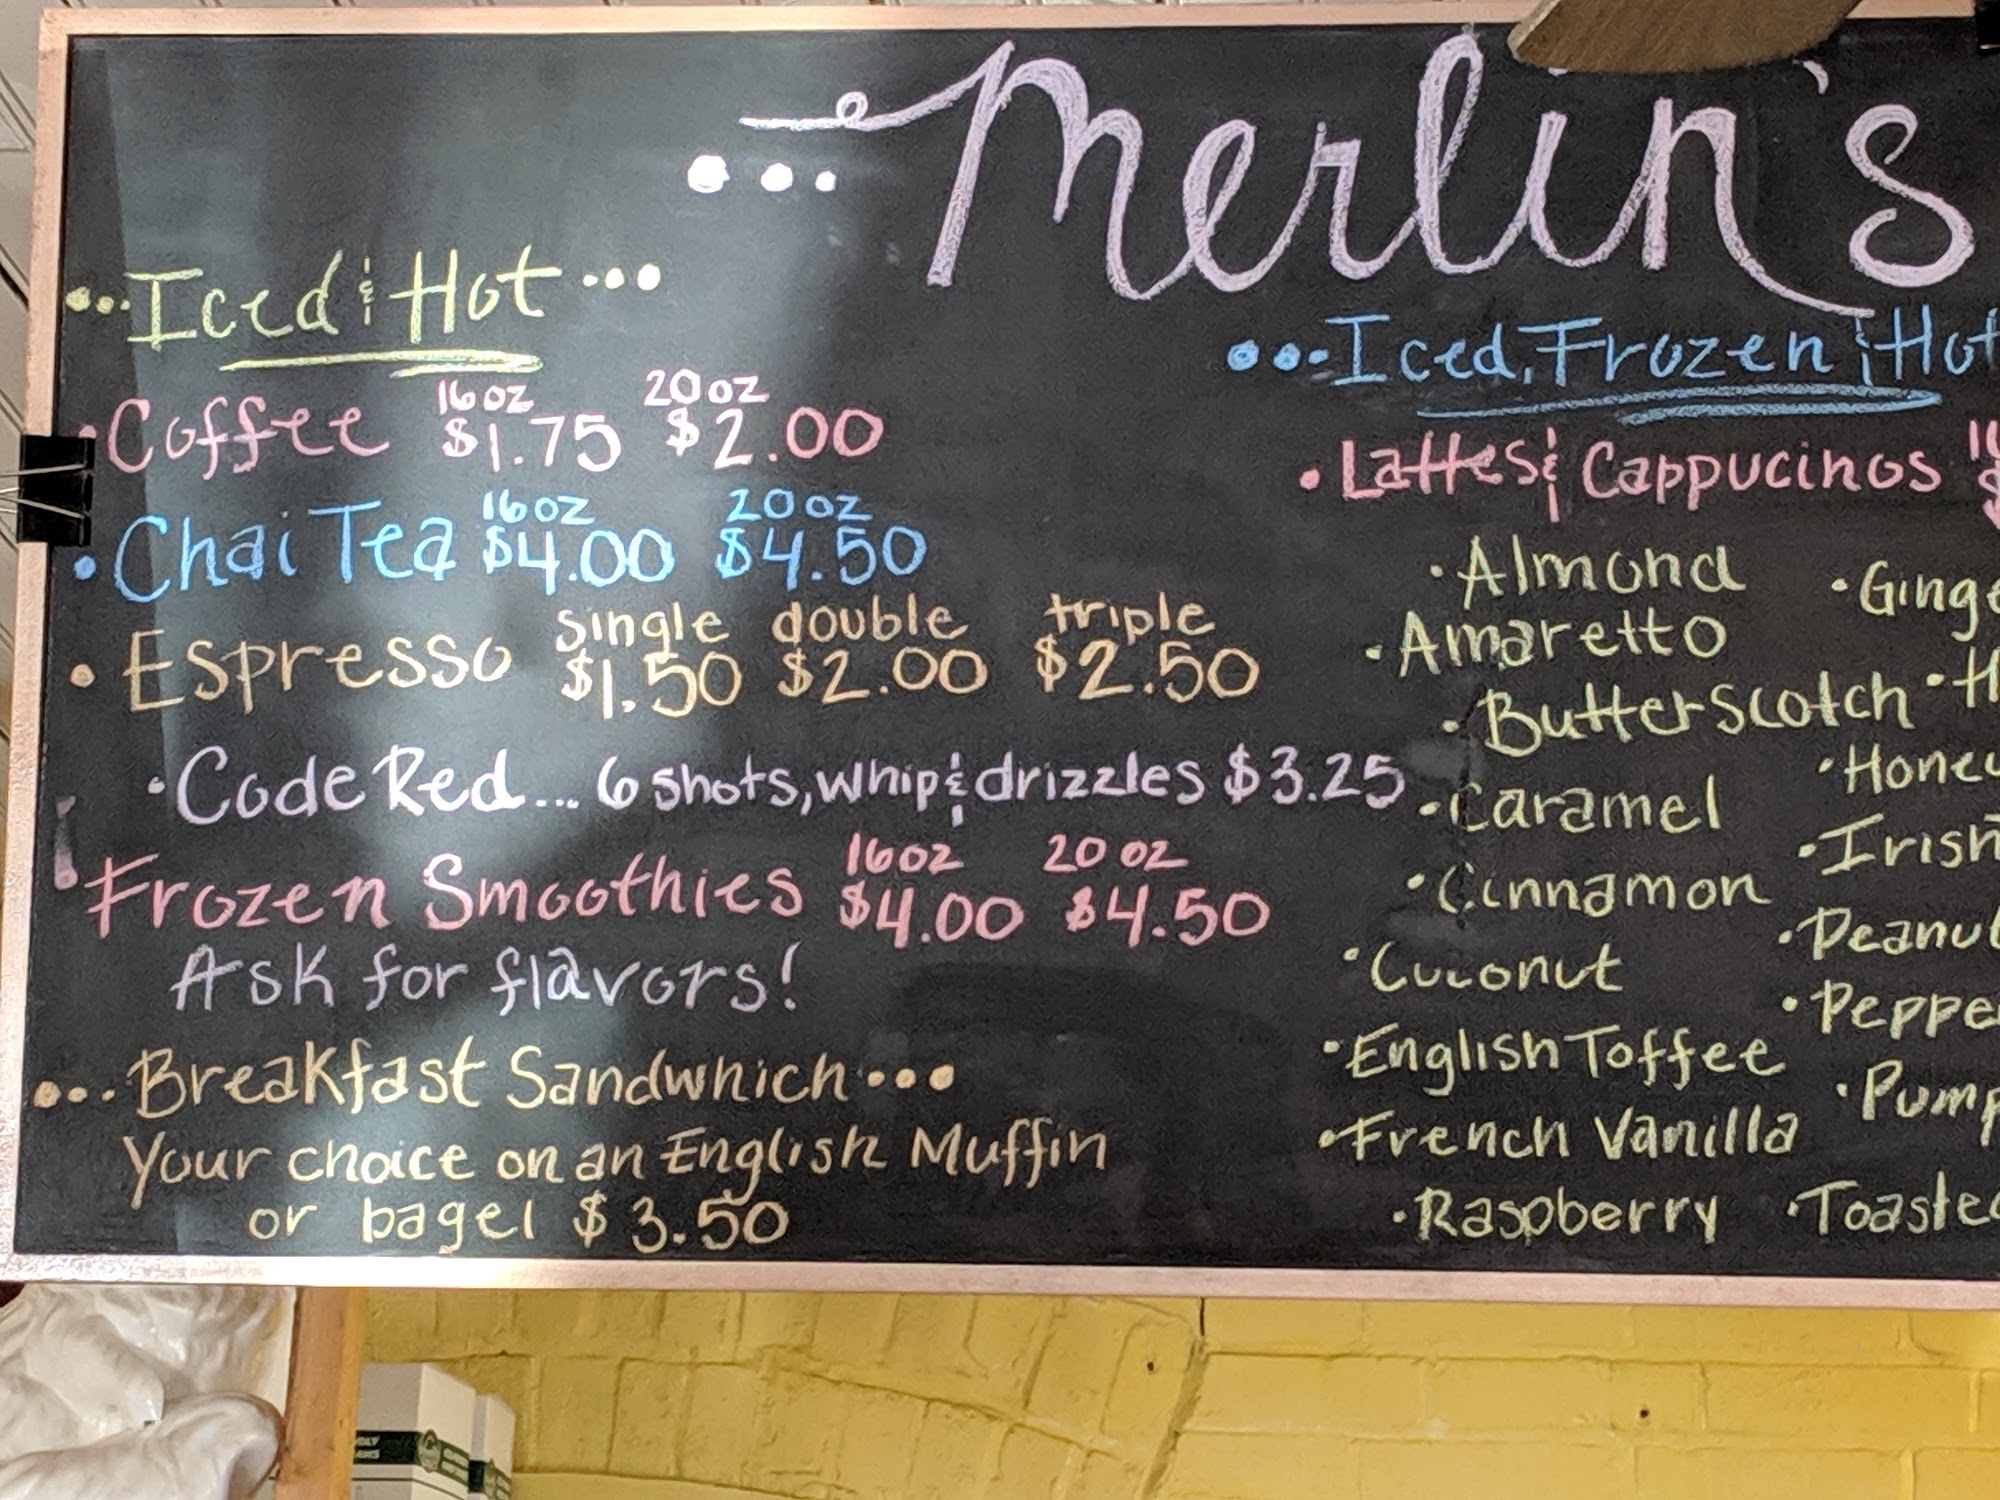 Merlin's
Iced & Hot
16oz 20oz
Coffee $1.75 $2.00
16oz 20oz
Chai Tea $4.00 $4.50
single double triple
Espresso $1.50 $2.00 $2.50
Code Red... 6 shots, whip & drizzles $3.25
16oz 20oz
Frozen Smoothies $4.00 $4.50
Ask for flavors!
Breakfast Sandwhich
Your choice on an English Muffin
or bagel $3.50
Iced, Frozen & Hot
Lattes & Cappucinos
Almond
Amaretto
Butterscotch
Caramel
Cinnamon
Coconut
English Toffee
French Vanilla
Raspberry
Irish
Toasted